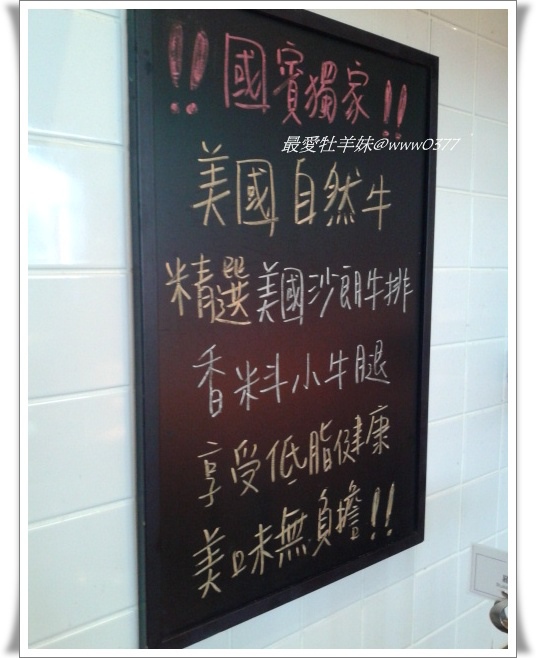 !! 國賓獨家 !!
最愛牡羊妹@www0377
美國自然牛
精選美國沙朗牛排
香料小牛腿
享受低脂健康
美味無負擔!!